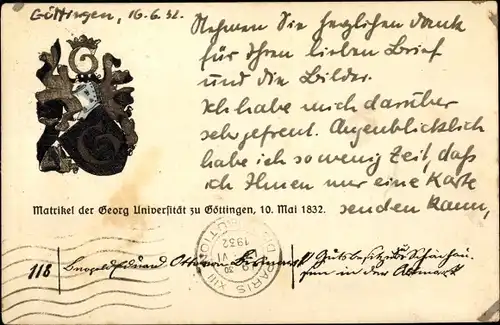 Göttingen, 16.6.32.
Nehmen Sie herzlichen Dank
für Ihren lieben Brief
und die Bilder.
Ich habe mich darüber
sehr gefreut. Augenblicklich
habe ich so wenig Zeit, daß
ich Ihnen nur eine Karte
senden kann,
G
G
Matrikel der Georg Universität zu Göttingen, 10. Mai 1832.
PARIS XIII
DISTRIBUTION
VI
1932
118 Leopold Eduard Otto von Bismarck Gutsbesitzer Schönhau-
sen in der Altmark